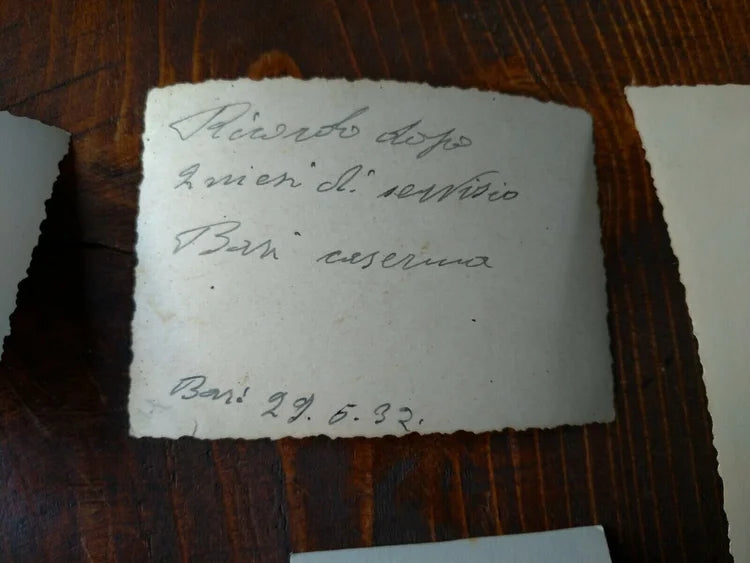 Ricordo dopo
2 mesi di servisio
Bari caserma
Bari 29. 5. 32.